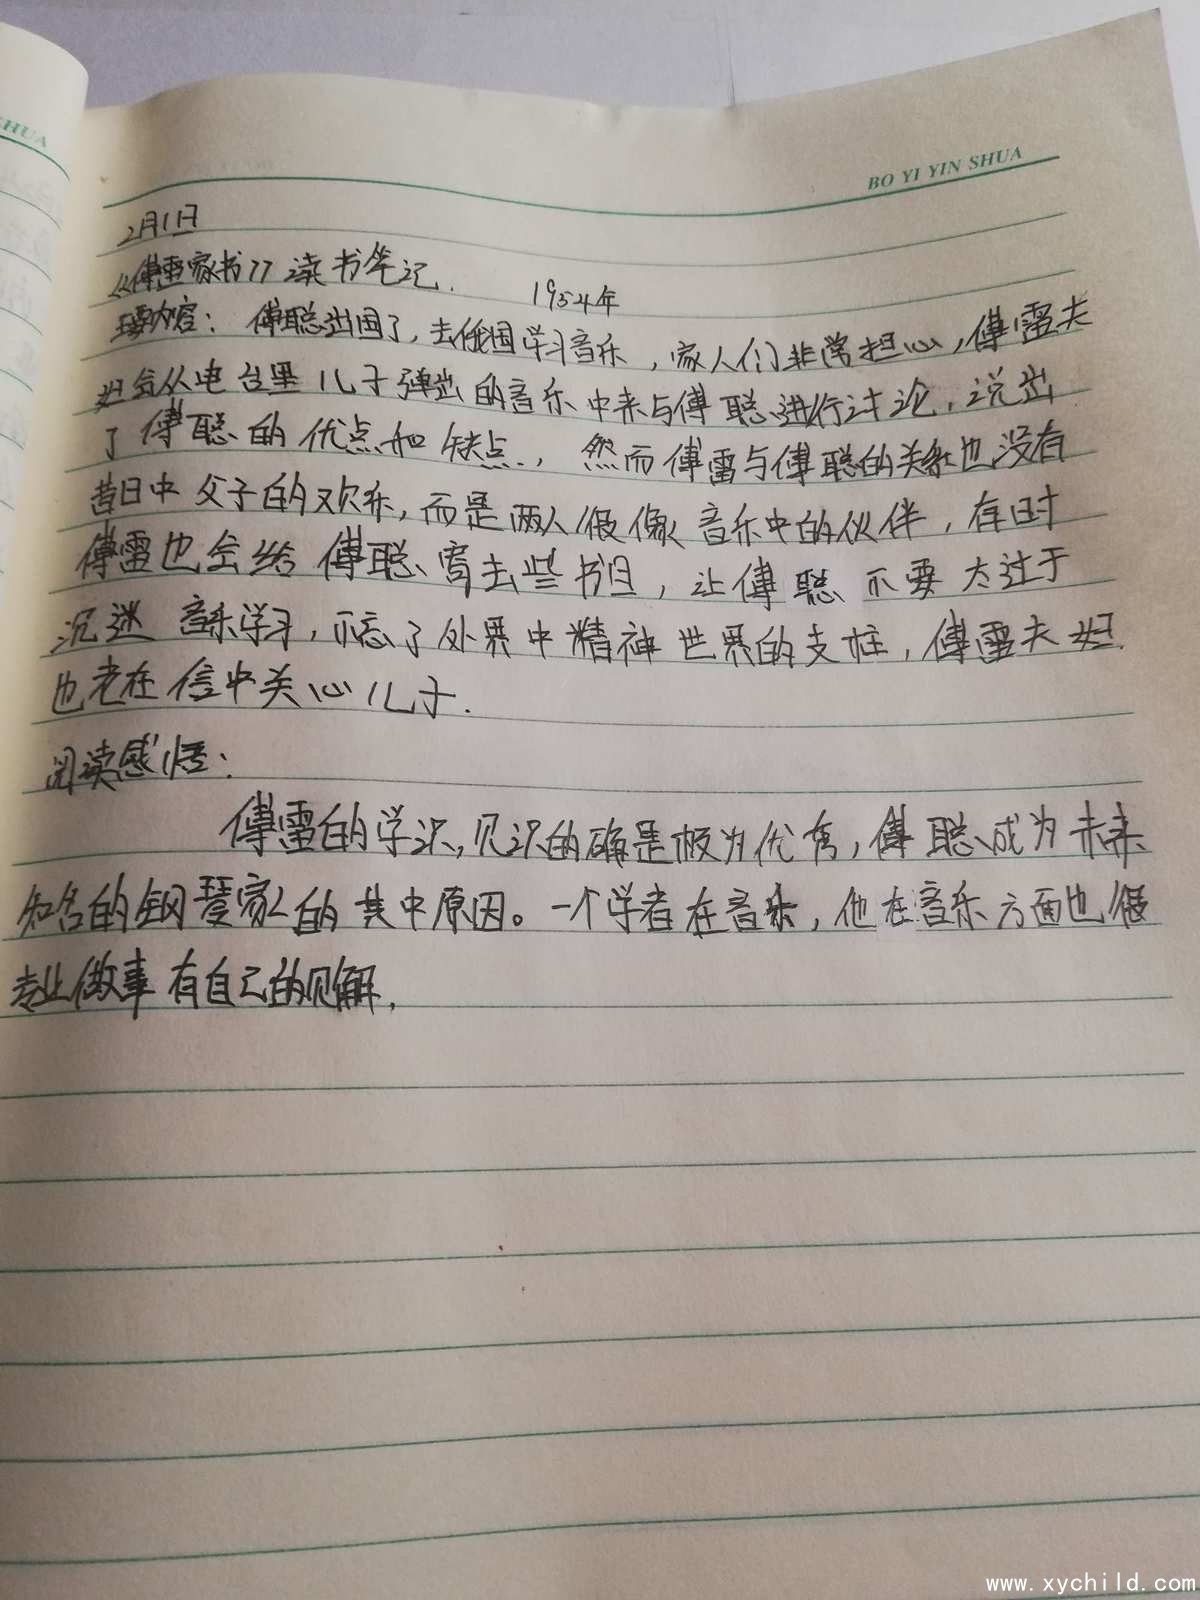 HUA
BO YI YIN SHUA
2月1日
《傅雷家书》读书笔记.
1954年
主要内容：傅聪出国了，去俄国学习音乐，家人们非常担心，傅雷夫
妇会从电台里儿子弹出的音乐中来与傅聪进行讨论，说出
了傅聪的优点和缺点.，然而傅雷与傅聪的关系也没有
昔日中父子的欢乐，而是两人很像音乐中的伙伴，有时
傅雷也会给傅聪寄去些书目，让傅聪不要太过于
沉迷音乐学习，而忘了外界中精神世界的支柱，傅雷夫妇
也老在信中关心儿子.
阅读感悟：
傅雷的学识，见识的确是极为优秀，傅聪成为未来
知名的钢琴家的其中原因。一个学者在音乐，他在音乐方面也很
专业做事有自己的见解.
www.xychild.com